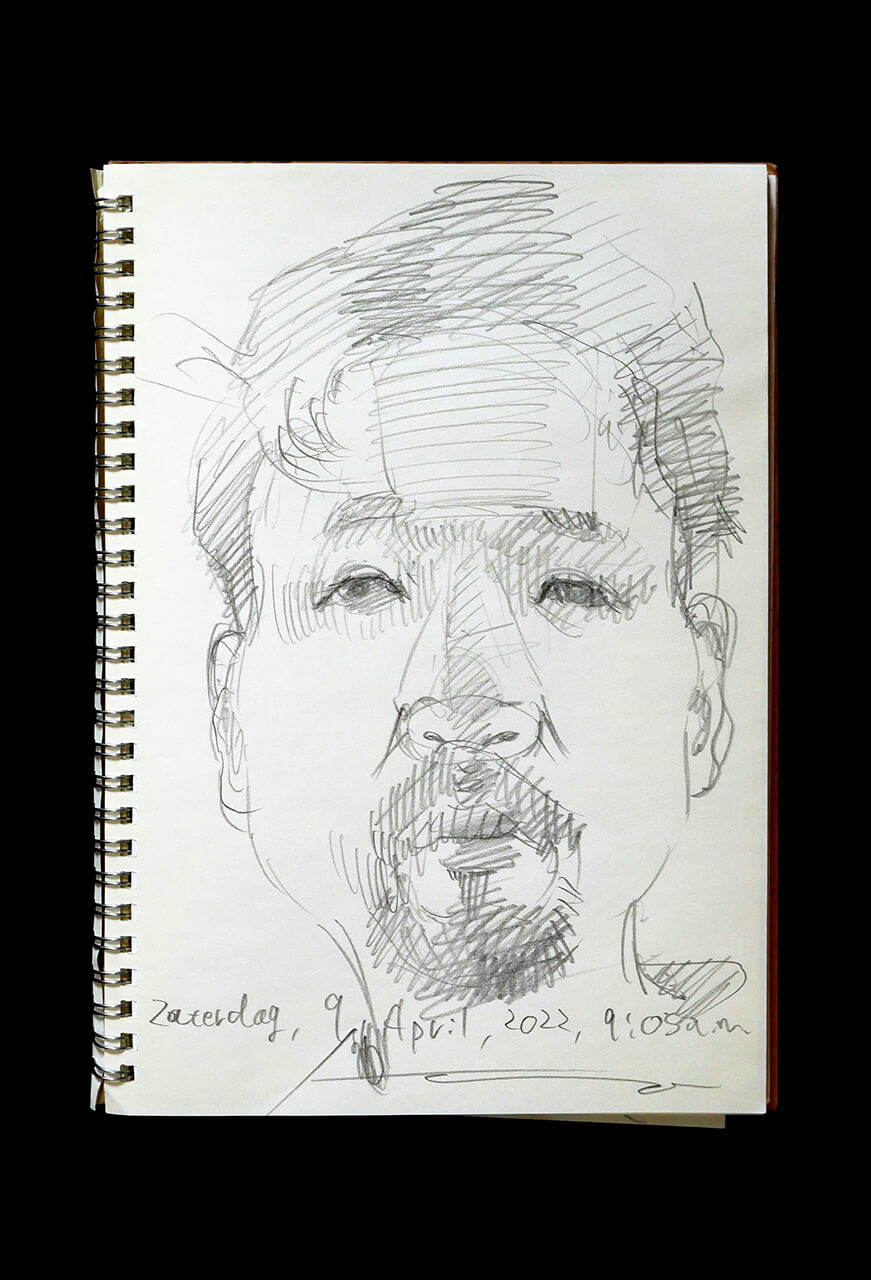 Zaterdag, 9 April, 2022, 9:05a.m